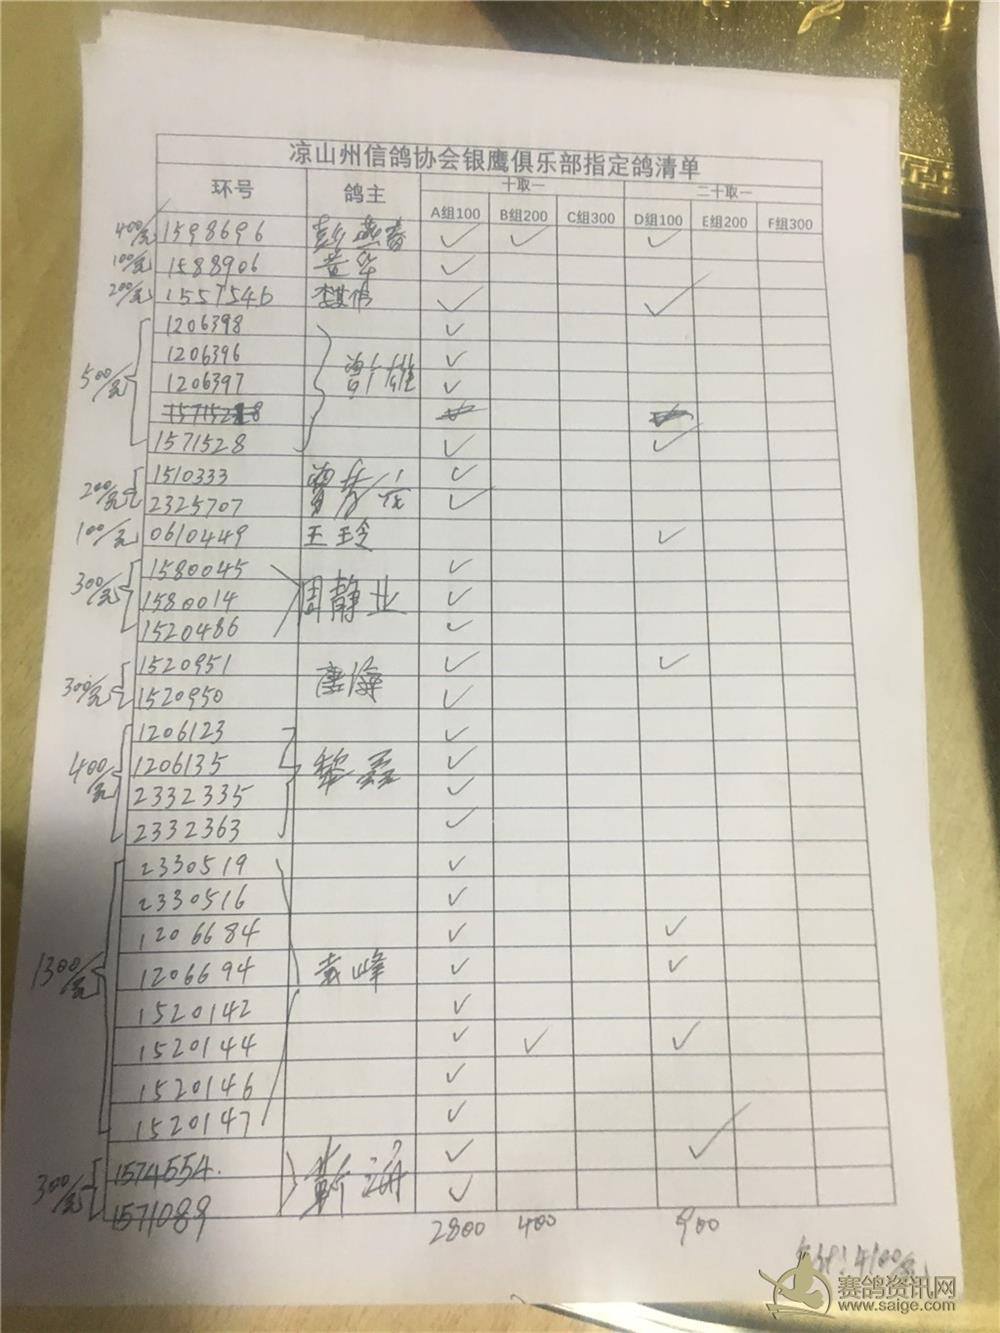 凉山州信鸽协会银鹰俱乐部指定鸽清单
环号 鸽主 十取一 二十取一
A组100 B组200 C组300 D组100 E组200 F组300
400/元 1598696 ✓ ✓ ✓
100/元 1588906 ✓
200/元 1557546 ✓ ✓
1206398 ✓
1206396 ✓
500/元 1206397 ✓
1571528 ✓ ✓
1510333 ✓
200/元 2325707 ✓
100/元 0610449 王玲 ✓
1580045 ✓
300/元 1580014 周静业 ✓
1520486 ✓
1520951 ✓ ✓
300/元 1520950 唐海 ✓
1206123 ✓
400/元 1206135 黎磊 ✓
2332335 ✓
2332363 ✓
2330519 ✓
2330516 ✓
1206684 ✓ ✓
1300/元 1206694 袁峰 ✓ ✓
1520142 ✓
1520144 ✓ ✓ ✓
1520146 ✓
1520147 ✓
1574554. ✓ ✓
300/元 1571089 ✓
2800 400 900
4100/元
赛鸽资讯网
www.saige.com